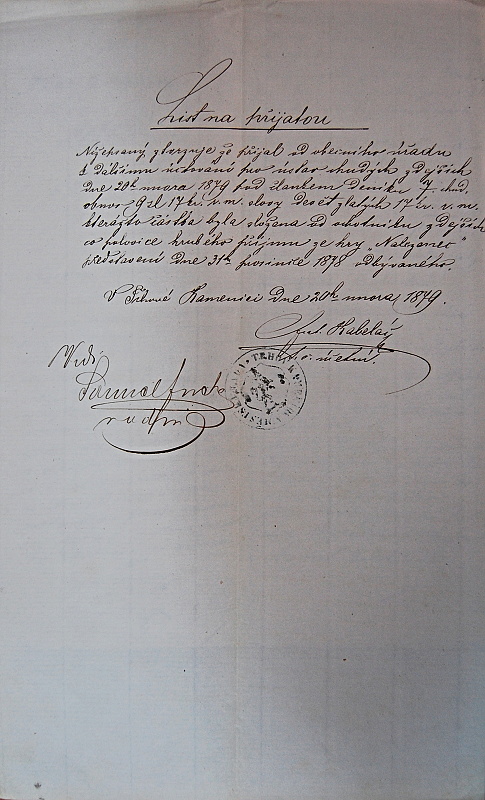 List na přijatou
Nížepsaný ztvrzuje že přijal od obecního úřadu
k dalšímu účtování pro ústav chudých zdejších
dne 20ho unora 1879 pod člankem deniku 7 chud.
obnos 9 zl 17 kr. v. m. slovy devět zlatých 17 kr. v. m.
kterážto částka byla složena od ochotníků zdejších
co polovice hrubého příjmu ze hry „Nalezenec"
představení dne 31ho prosince 1878 odbývaného.
V Trhové Kamenici dne 20ho unora 1879.
Ant. Kubeláč
účetní.
Vidi
radní
TRHO KAMENI MĚSTE